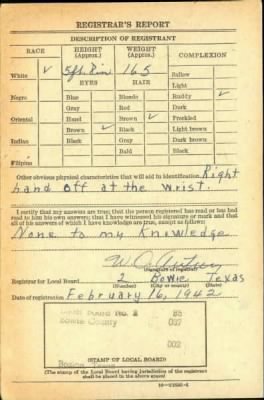 REGISTRAR'S REPORT
DESCRIPTION OF REGISTRANT
RACE HEIGHT (Approx.) WEIGHT (Approx.) COMPLEXION
White ✓ 165 Sallow
EYES HAIR Light
Negro Blue Blonde Ruddy ✓
Gray Red Dark
Oriental Hazel Brown ✓ Freckled
Brown ✓ Black Light brown
Indian Black Gray Dark brown
Bald Black
Filipino
Other obvious physical characteristics that will aid in identification Right
hand off at the wrist.
I certify that my answers are true; that the person registered has read or has had
read to him his own answers; that I have witnessed his signature or mark and that
all of his answers of which I have knowledge are true, except as follows:
None to my Knowledge
W.
(Signature of registrar)
Registrar for Local Board 2 Bowie Texas
(Number) (City or county) (State)
Date of registration February 16, 1942
Board No. 2 85
Bowie County 037
002
Texas
(STAMP OF LOCAL BOARD)
(The stamp of the Local Board having jurisdiction of the registrant
shall be placed in the above space)